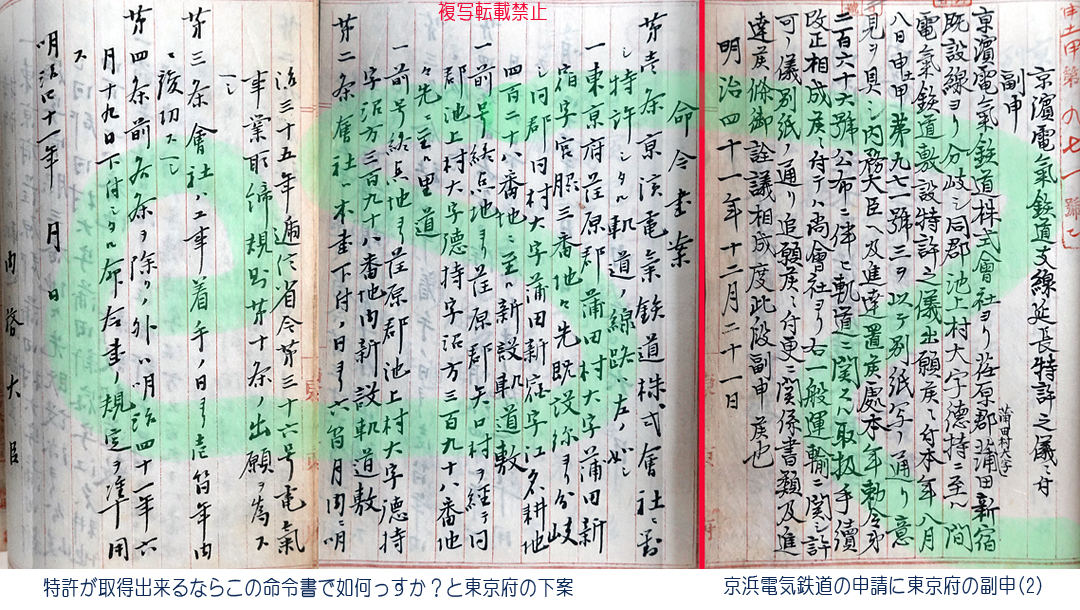 複写転載禁止
土甲第九七一號ノ二
京濱電氣鉄道支線延長特許之儀ニ付
副申
京濱電氣鉄道株式會社ヨリ荏原郡蒲田村大字蒲田新宿
既設線ヨリ分岐シ同郡池上村大字德持ニ至ル間
電氣鉄道敷設特許之儀出願候ニ付本年八月
八日申土甲第九七一號三ヲ以テ別紙写ノ通リ意
見ヲ具シ内務大臣ヘ及進達置候處本年勅令第
二百六十六號ヲ公布ニ伴ヒ軌道ニ関スル取扱手續
改正相成候ニ付テハ尚會社ヨリ右一般運輸ニ関シ許
可ノ儀別紙ノ通リ追願候ニ付更ニ関係書類及進
達候條御詮議相成度此段副申候也
明治四十一年十二月二十一日
命令書案
第壱条 京濱電氣鉄道株式會社ニ対
シ特許シタル軌道ノ線路ハ左ノ如シ
一東京府荏原郡蒲田村大字蒲田新
宿字宮脇三番地々先既設線ヨリ分岐
シ同郡同村大字蒲田新宿字江名耕地
四百二十八番地ニ至ル新設軌道敷
一前号終点地ヨリ荏原郡矢口村ヲ経テ同
郡池上村大字德持字沼方三百九十八番地
々先ニ至ル里道
一前号終点地ヨリ荏原郡池上村大字德持
字沼方三百九十八番地内新設軌道敷
第二条 會社ハ本書下付ノ日ヨリ六箇月内ニ明
治三十五年逓信省令第三十六号電氣
事業取締規則第十条ノ出願ヲ為ス
ヘシ
第三条 會社ハ工事着手ノ日ヨリ壱箇年内
ニ竣功スヘシ
第四条 前各条ヲ除クノ外ハ明治四十一年六
月十九日下付シタル命令書ノ規定ヲ準用
ス
明治四十一年 月 日
内務大臣
京浜電気鉄道の申請に東京府の副申(2)
特許が取得出来るならこの命令書で如何っすか？と東京府の下案